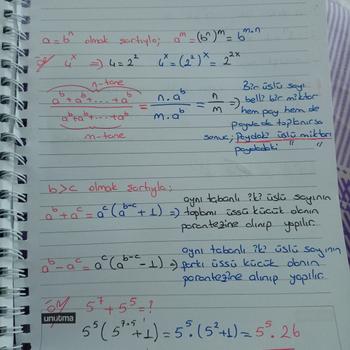 a = bⁿ olmak şartıyla; aᵐ = (bⁿ)ᵐ = bᵐ·ⁿ
Ör/ 4ˣ ⇒) 4 = 2² 4ˣ = (2²)ˣ = 2²ˣ
n-tane
aᵇ + aᵇ + ... + aᵇ / aᵇ + aᵇ + ... + aᵇ = n.aᵇ / m.aᵇ = n / m ⇒)
m-tane
Bir üslü sayı
belli bir miktar
hem pay hem de
payda da toplanırsa
sonuç; Paydaki üslü miktarı
paydadaki " "
b > c olmak şartıyla;
aᵇ + aᶜ = aᶜ(aᵇ⁻ᶜ + 1) ⇒) aynı tabanlı iki üslü sayının
toplamı üssü küçük olanın
parantezine alınıp yapılır.
aᵇ - aᶜ = aᶜ(aᵇ⁻ᶜ - 1) ⇒) aynı tabanlı iki üslü sayının
farkı üssü küçük olanın
parantezine alınıp yapılır.
Ör/ 5⁷ + 5⁵ = ?
unutma
5⁵(5⁷⁻⁵ + 1) = 5⁵.(5² + 1) = 5⁵.26